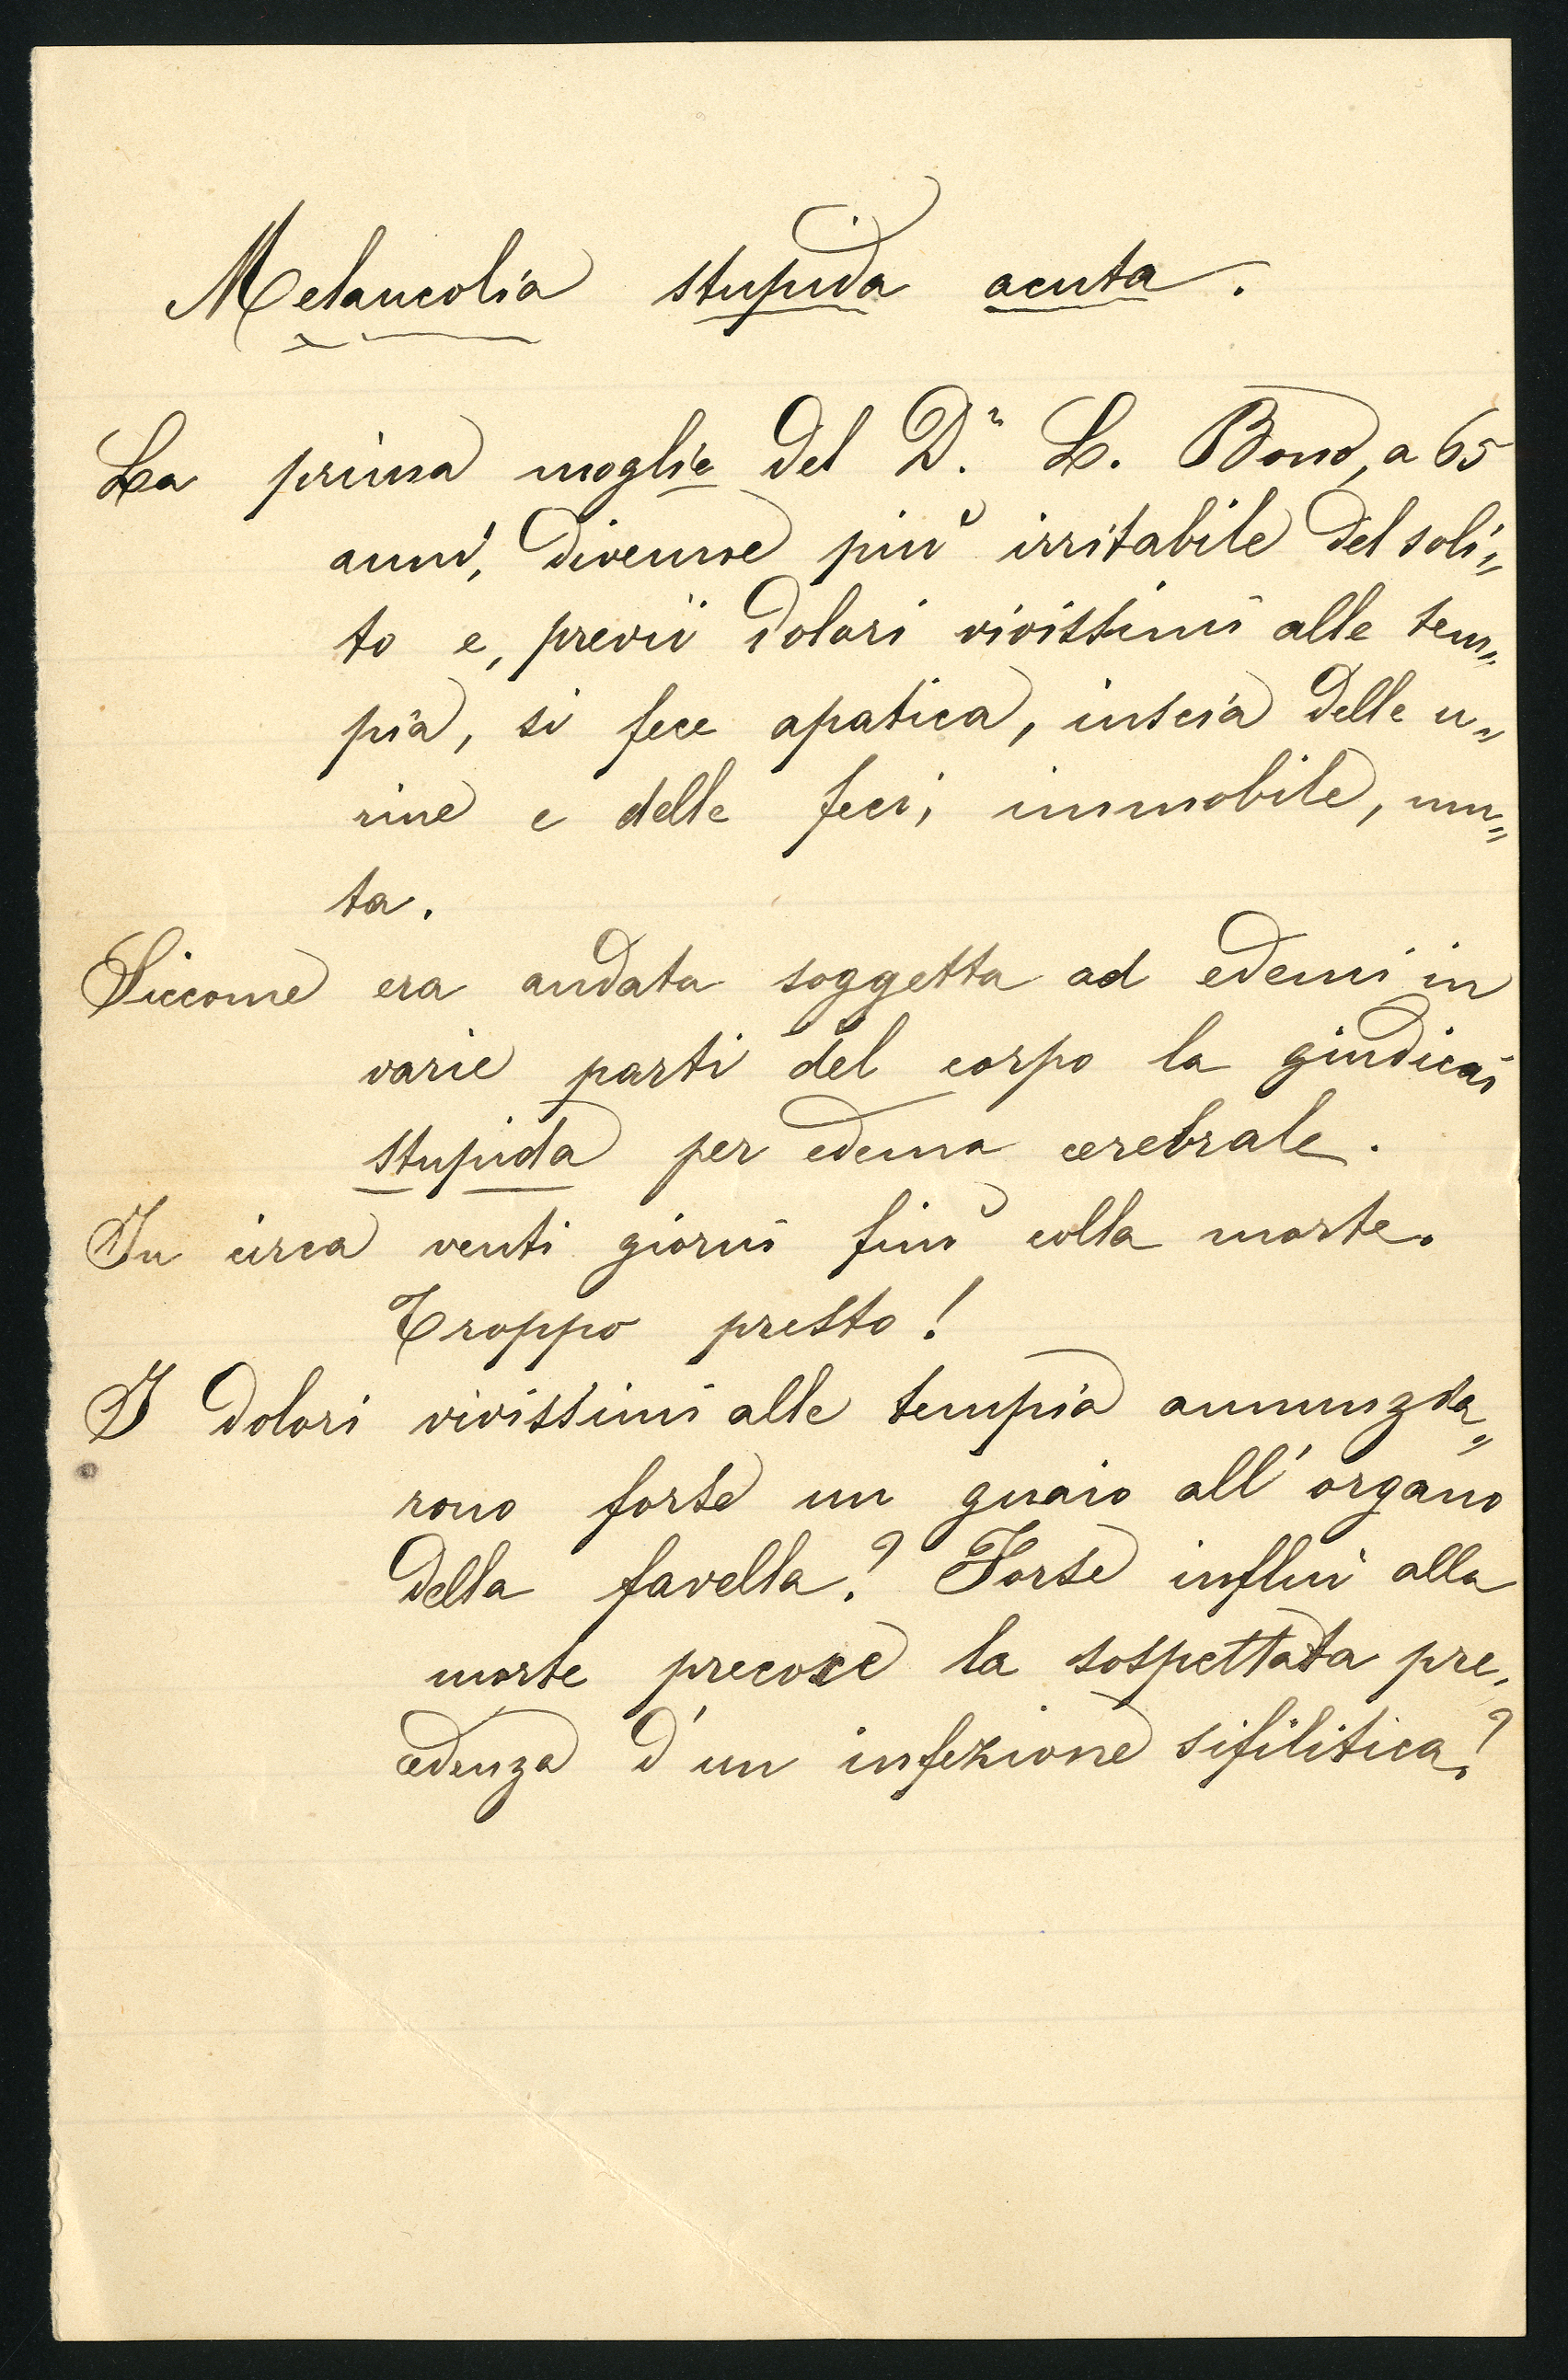 Melancolia stupida acuta.
La prima moglie del D.r L. Bono, a 65
anni, divenne più irritabile del soli=
to e, previi dolori vivissimi alle tem=
pia, si fece apatica, inscia delle u=
rine e delle feci, immobile, mu=
ta.
Siccome era andata soggetta ad edemi in
varie parti del corpo la giudicai
stupida per edema cerebrale.
In circa venti giorni finì colla morte.
Troppo presto!
I dolori vivissimi alle tempia annunzia=
rono forse un guaio all'organo
della favella? Forse influì alla
morte precoce la sospettata pre=
cedenza d'un infezione sifilitica?